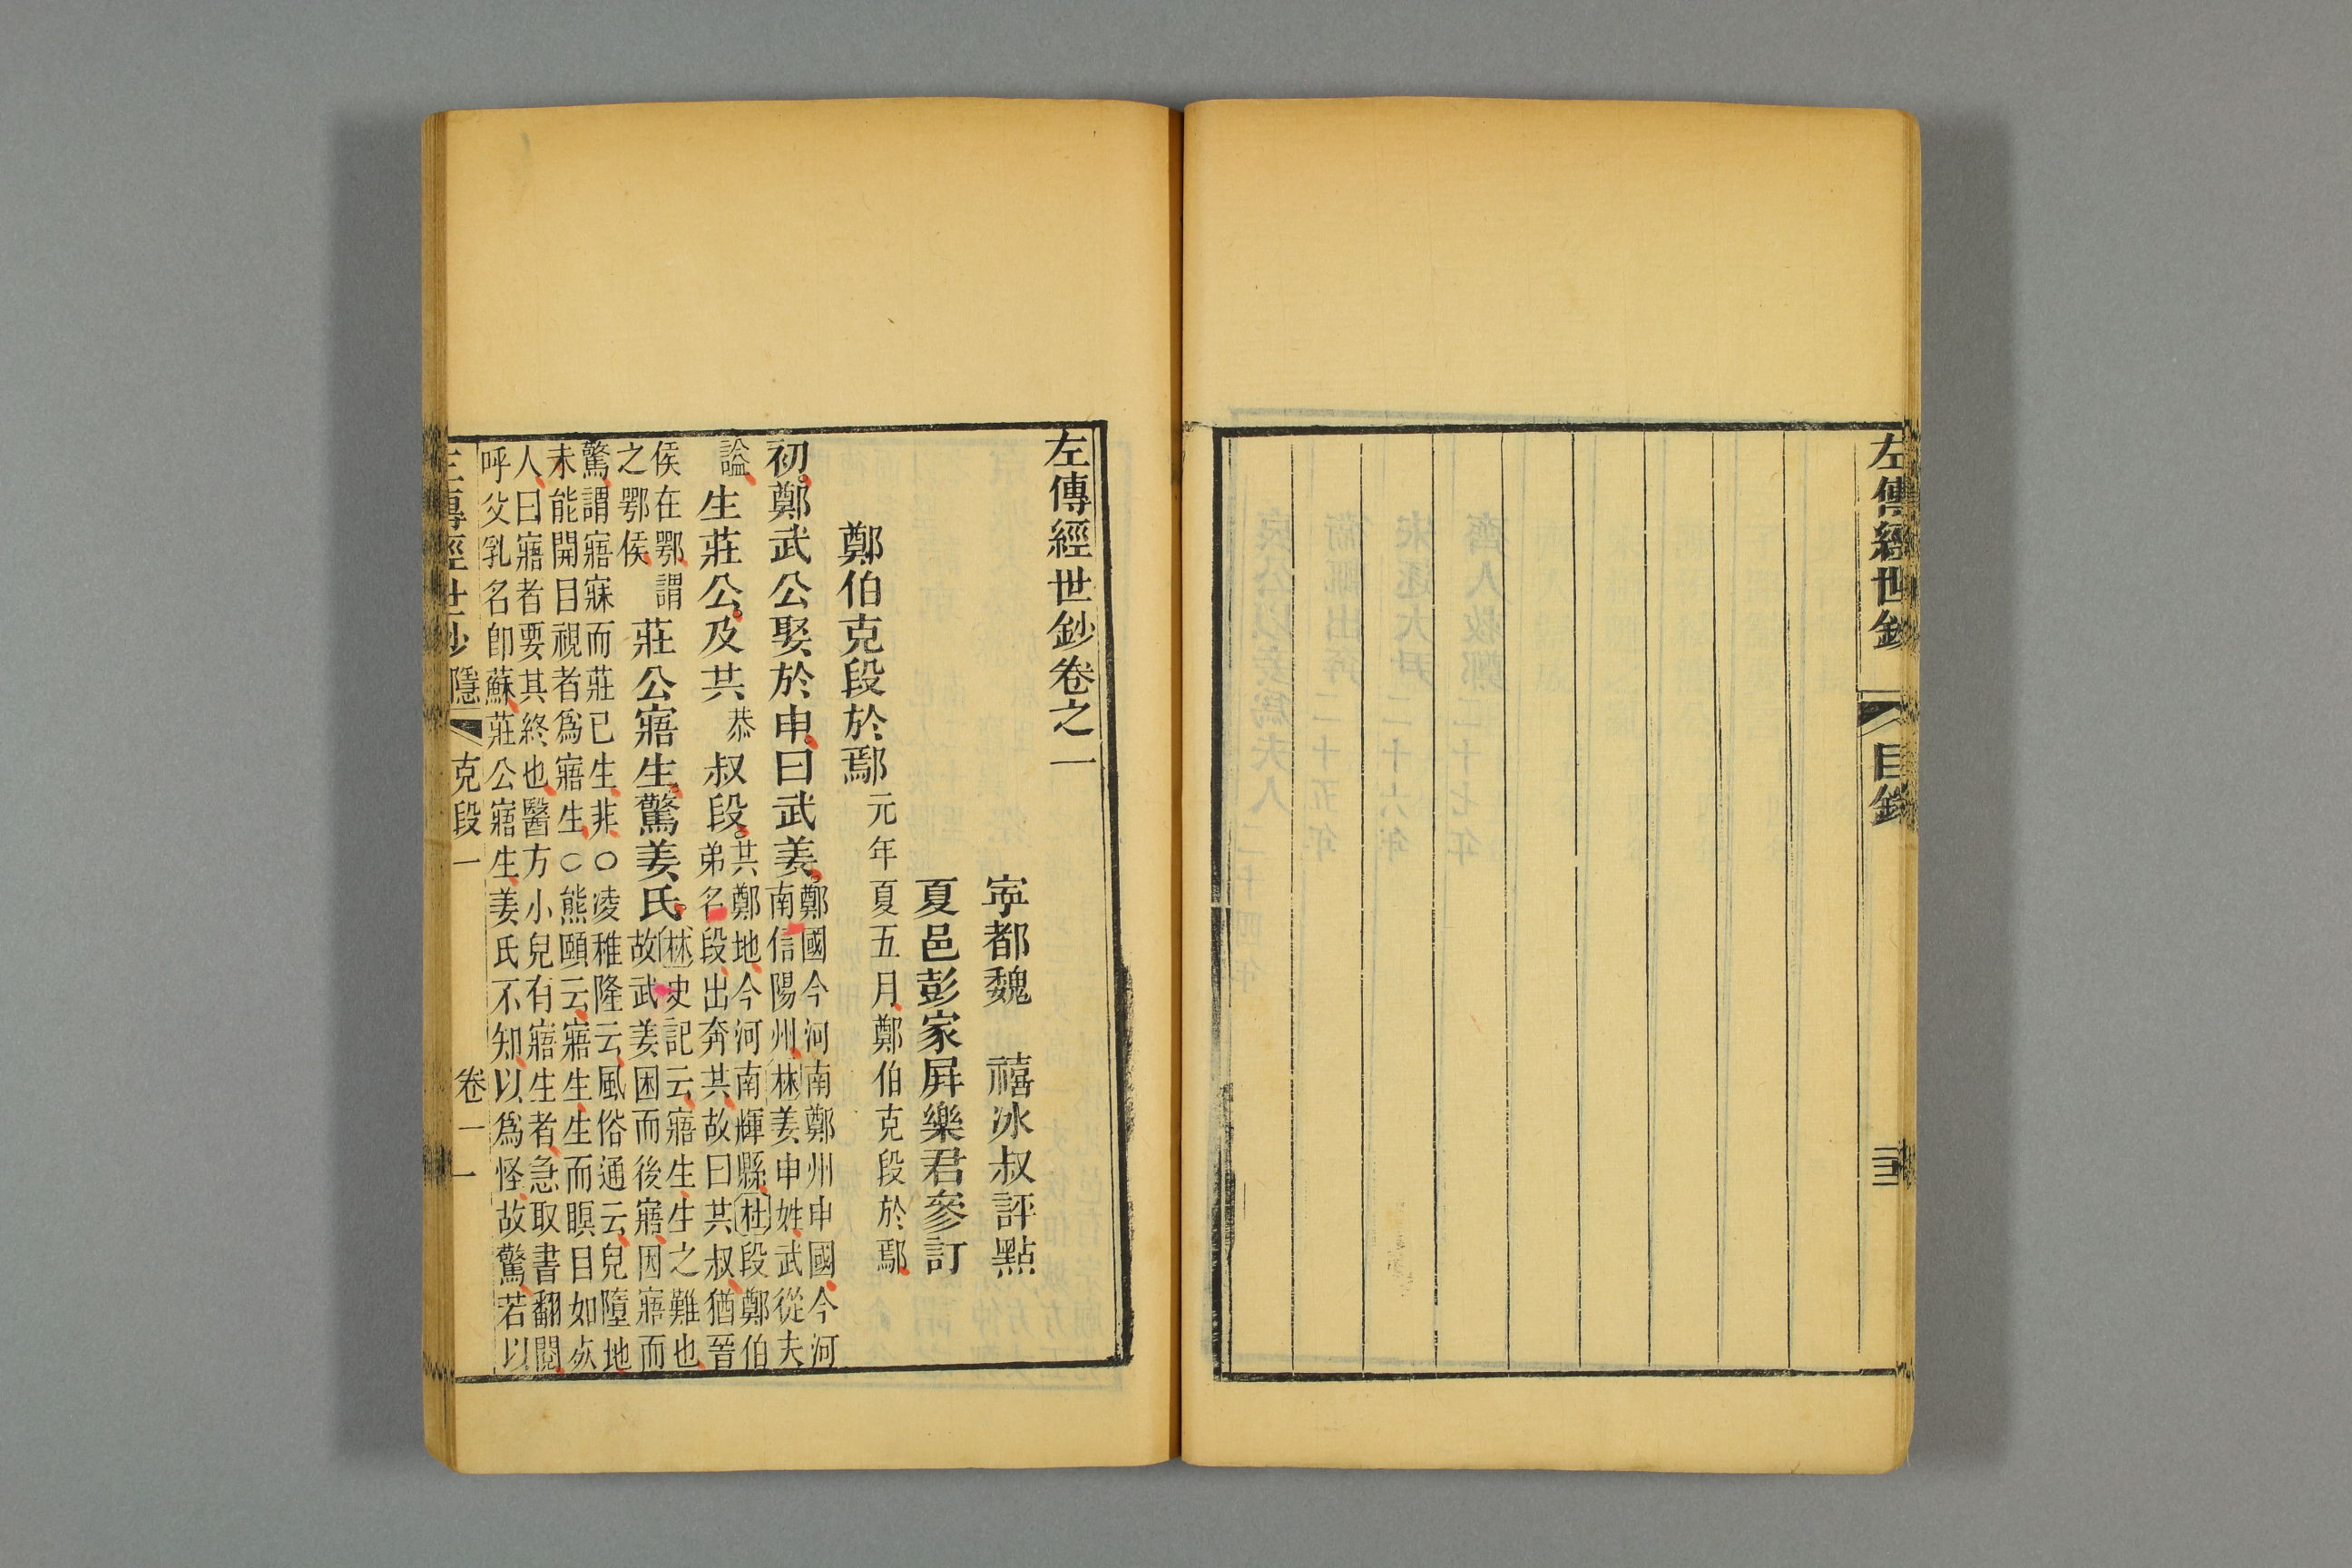 左傳經世鈔
目錄
三
左傳經世鈔卷之一
寧都魏 禧冰叔評點
夏邑彭家屛樂君參訂
鄭伯克段於鄢元年夏五月鄭伯克段於鄢
初鄭武公娶於申曰武姜鄭國今河南鄭州申國今河
南信陽州林姜申姓武從夫
諡生莊公及共恭叔段共鄭地今河南輝縣杜段鄭伯
弟名段出奔共故曰共叔猶晉
侯在鄂謂
之鄂侯莊公寤生驚姜氏林史記云寤生生之難也
故武姜困而後寤因寤而
驚謂寤寐而莊已生非○凌稚隆云風俗通云兒墮地
未能開目視者爲寤生○熊頤云寤生生而瞑目如死
人曰寤者要其終也醫方小兒有寤生者急取書翻閱
呼父乳名卽蘇莊公寤生姜氏不知以爲怪故驚若以
左傳經世鈔 隱 克段一 卷一 一